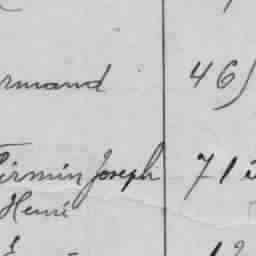 rmand 465
Firmin Joseph 71
Henri